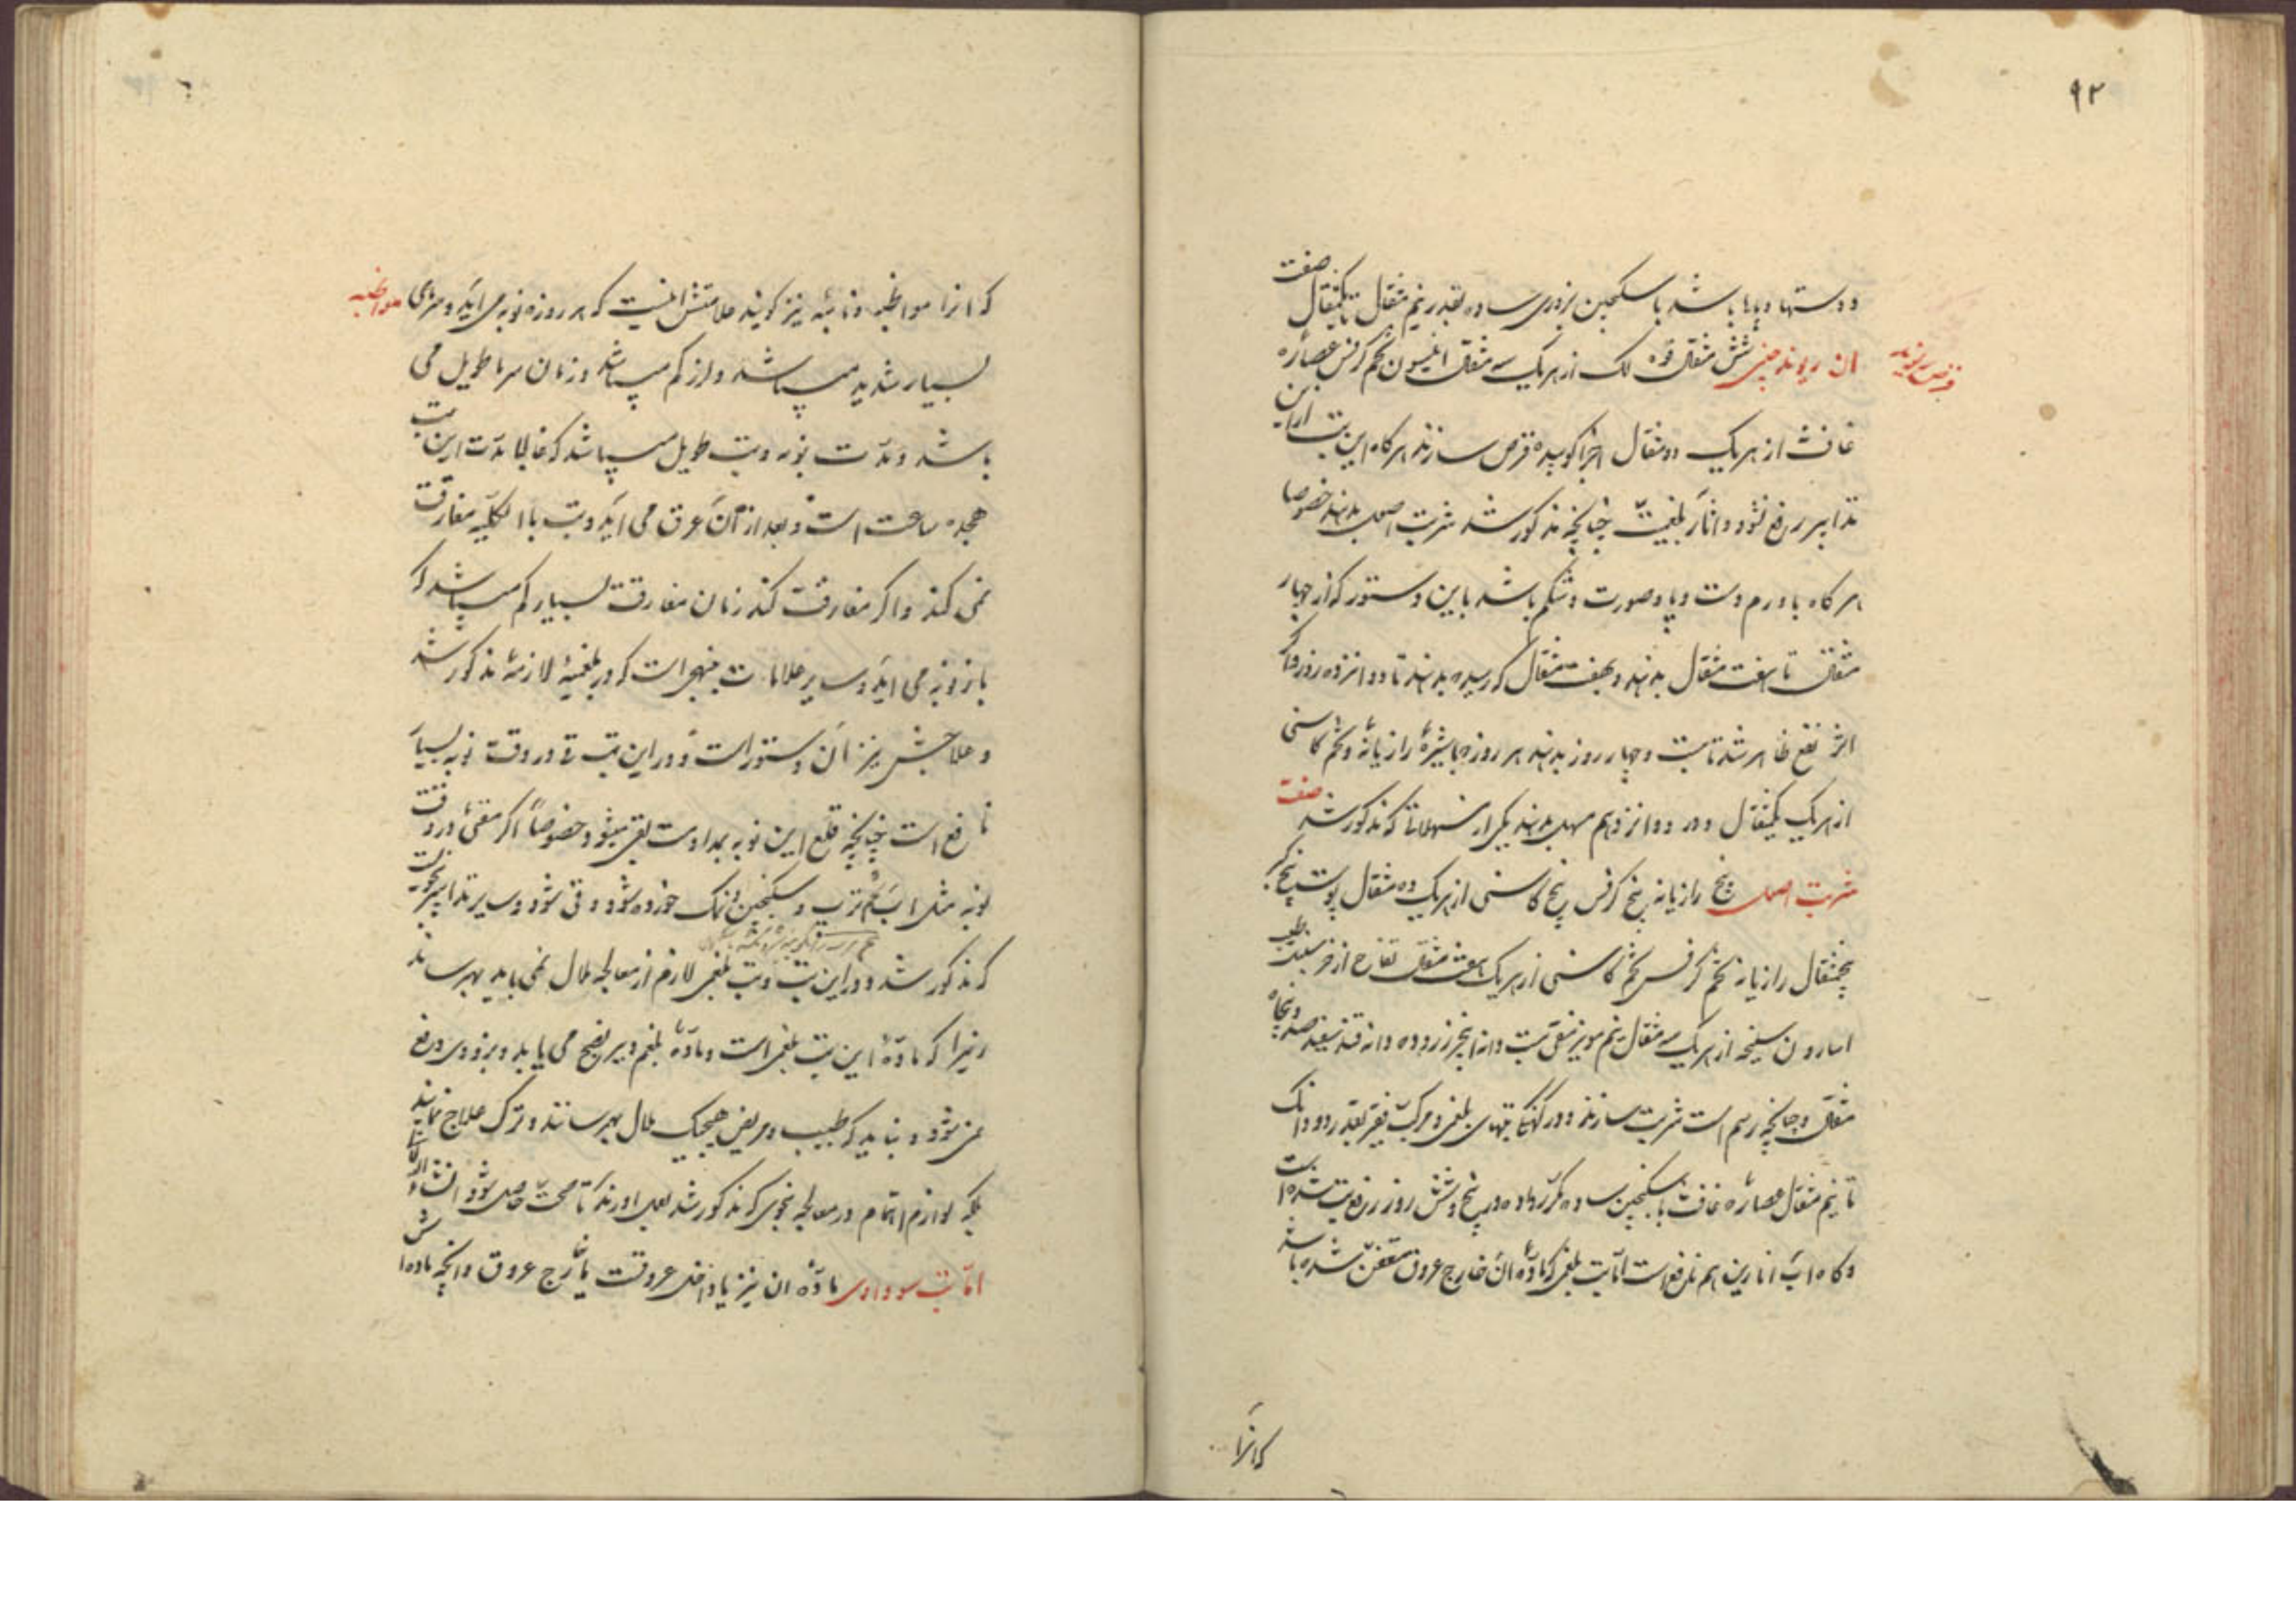 ۹۲
ودستها و پاها باشد با سکنجبین بزوری ساده بقدر نیم مثقال تا یکمثقال صفت
قرص ریوند
ان ریوند چینی شش مثقال فوه لک از هریک سه مثقال انیسون تخم کرفس عصاره
غافث از هریک دو مثقال اجزا کوبیده قرص سازند هرکاه این تب ازین
تدابیر رفع نشود و اثار بلغمیت چنانچه مذکور شد شربت اصول بدهند خصوصا
هرکاه با ورم دست و پا و صورت و شکم باشد باین دستور که از چهار
مثقال تا هفت مثقال بدهند و بهفت مثقال که رسید بدهند تا دوانزده روز واکر
اثر نفع ظاهر شد تا بیست و چهار روز بدهند هر روز با شیرهٔ رازیانه و تخم کاسنی
از هریک یکمثقال و در دوانزدهم مسهل بدهند یکی از مسهلاتی که مذکور شد صفت
شربت اصول بیخ رازیانه بیخ کرفس بیخ کاسنی از هریک ده مثقال پوست بیخ کبر
پنجمثقال رازیانه تخم کرفس تخم کاسنی از هریک هفت مثقال فقاح اذخر سنبل الطیب
اسارون سلیخه از هریک سه مثقال نیم مویز منقی بیست دانه انجیر زرد ده دانه قند سفید صد و پنجاه
مثقال و چنانچه رسم است شربت سازند و در کهنکی تبهای بلغمی و مرکب فقیر بقدر دو دانک
تا نیم مثقال عصارهٔ غافث با سکنجبین ساده مکرر داده در پنج و شش روز رفع تب شده است
و کاه اب انارین هم نافع است اما تب بلغمی که مادهٔ ان خارج عروق متعفن شده باشد
که انرا
که انرا مواظبه و نائبه نیز کویند علامتش انیست که هر روزه نوبه می اید و سردی
مواظبه
بسیار شدید میباشد و لرز کم میباشد و زمان سرما طویل می
باشد و مدت نوبه و تب طویل میباشد که غالبا مدت این تب
هجده ساعت است و بعد از آن عرق می اید و تب با الکلیه مفارقت
نمی کند و اکر مفارقت کند زمان مفارقت بسیار کم میباشد که
باز نوبه می اید و سایر علامات بنهجی است که در بلغمیهٔ لازمه مذکور شد
و علاجش نیز بان دستور است و در این تب قی در وقت نوبه بسیار
نافع است چنانچه قلع این نوبه بمداومت بقی میشود خصوصاً اکر مقئ در وقت
نوبه مثل اب تخم ترب و سکنجبین و نمک خورده شود و قی شود و سایر تدابیر بنحویست
که مذکور شد و در این تب و تب بلغمی لازم از معالجه ملال نمی باید بهم رساند
زیرا که مادهٔ این تب بلغمی است و مادهٔ بلغم دیر نضج می یابد و بزودی دفع
نمی شود و نباید که طبیب و مریض هیچیک ملال بهم رسانند و ترک علاج نمایند
بلکه لوازم اهتمام در معالجه بنحوی که مذکور شد بعمل اورند تا صحت حاصل شود انشاء الله
اما تب سوداوی مادهٔ ان نیز یا داخل عروقست یا خارج عروق و انچه ماده اش